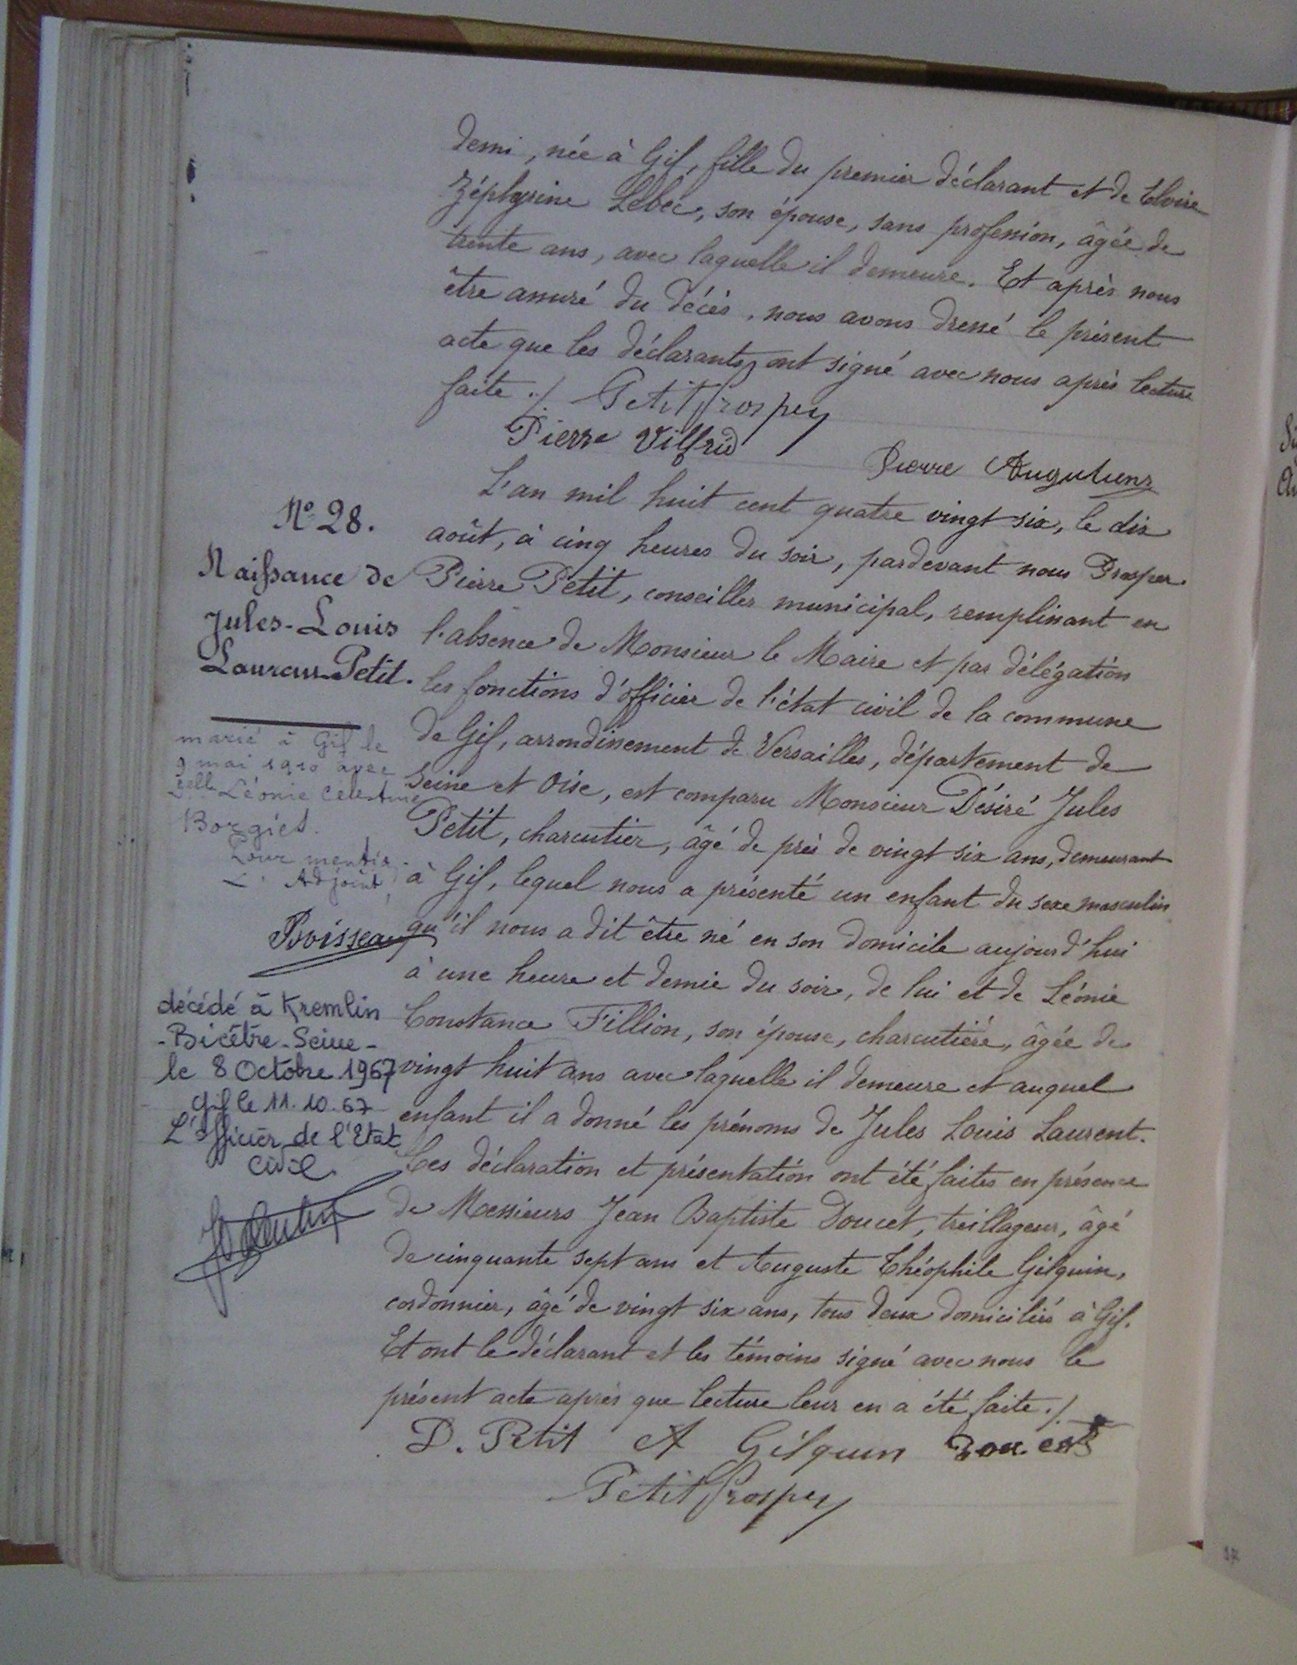 demi, née à Gif, fille du premier déclarant et de Elvire
Zéphyrine Lebec, son épouse, sans profession, âgée de
trente ans, avec laquelle il demeure. Et après nous
être assuré du décès, nous avons dressé le présent
acte que les déclarants ont signé avec nous après lecture
faite ./. Petit Prosper
Pierre Vilfrid
Pierre
L'an mil huit cent quatre vingt six, le dix
août, à cinq heures du soir, pardevant nous Prosper
Pierre Petit, conseiller municipal, remplissant en
l'absence de Monsieur le Maire et par délégation
les fonctions d'officier de l'état civil de la commune
de Gif, arrondissement de Versailles, département de
Seine et Oise, est comparu Monsieur Désiré Jules
Petit, charcutier, âgé de près de vingt six ans, demeurant
à Gif, lequel nous a présenté un enfant du sexe masculin
qu'il nous a dit être né en son domicile aujourd'hui
à une heure et demie du soir, de lui et de Léonie
Constance Fillion, son épouse, charcutière, âgée de
vingt huit ans avec laquelle il demeure et auquel
enfant il a donné les prénoms de Jules Louis Laurent.
Ces déclaration et présentation ont été faites en présence
de Messieurs Jean Baptiste Doucet, treillageur, âgé
de cinquante sept ans et Auguste Théophile Gilquin,
cordonnier, âgé de vingt six ans, tous deux domiciliés à Gif.
Et ont le déclarant et les témoins signé avec nous le
présent acte après que lecture leur en a été faite ./.
D. Petit A Gilquin Doucet
Petit Prosper
No 28.
Naissance de
Jules-Louis
Laurent Petit.
marié à Gif le
9 mai 1910 avec
Delle Léonie Célestine
Borgiet.
Pour mention
L'Adjoint
Boisseau
décédé à Kremlin
-Bicêtre-Seine-
le 8 Octobre 1967
Gif le 11.10.67
L'Officier de l'Etat
Civil